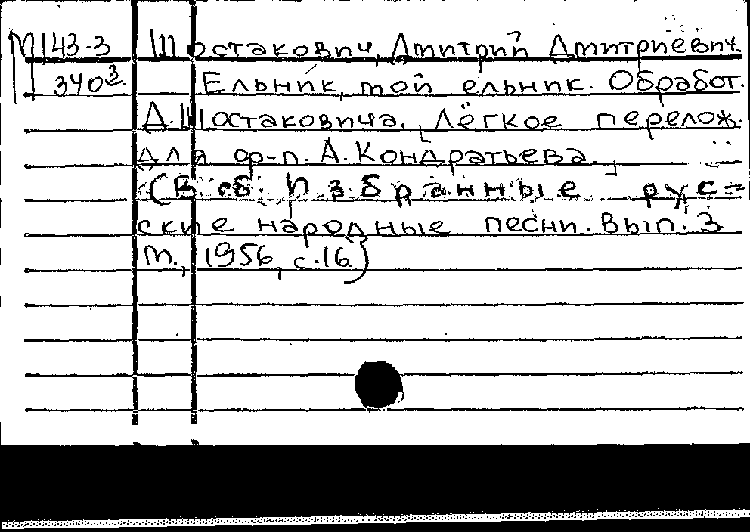 М 43-3 Шостакович, Дмитрий Дмитриевич.
340³ Ельник, мой ельник. Обработ.
Д. Шостаковича. Лёгкое перелож.
для ф-п. А. Кондратьева.
(В сб: Избранные рус=
ские народные песни. Вып. 3
М., 1956, с. 16.)